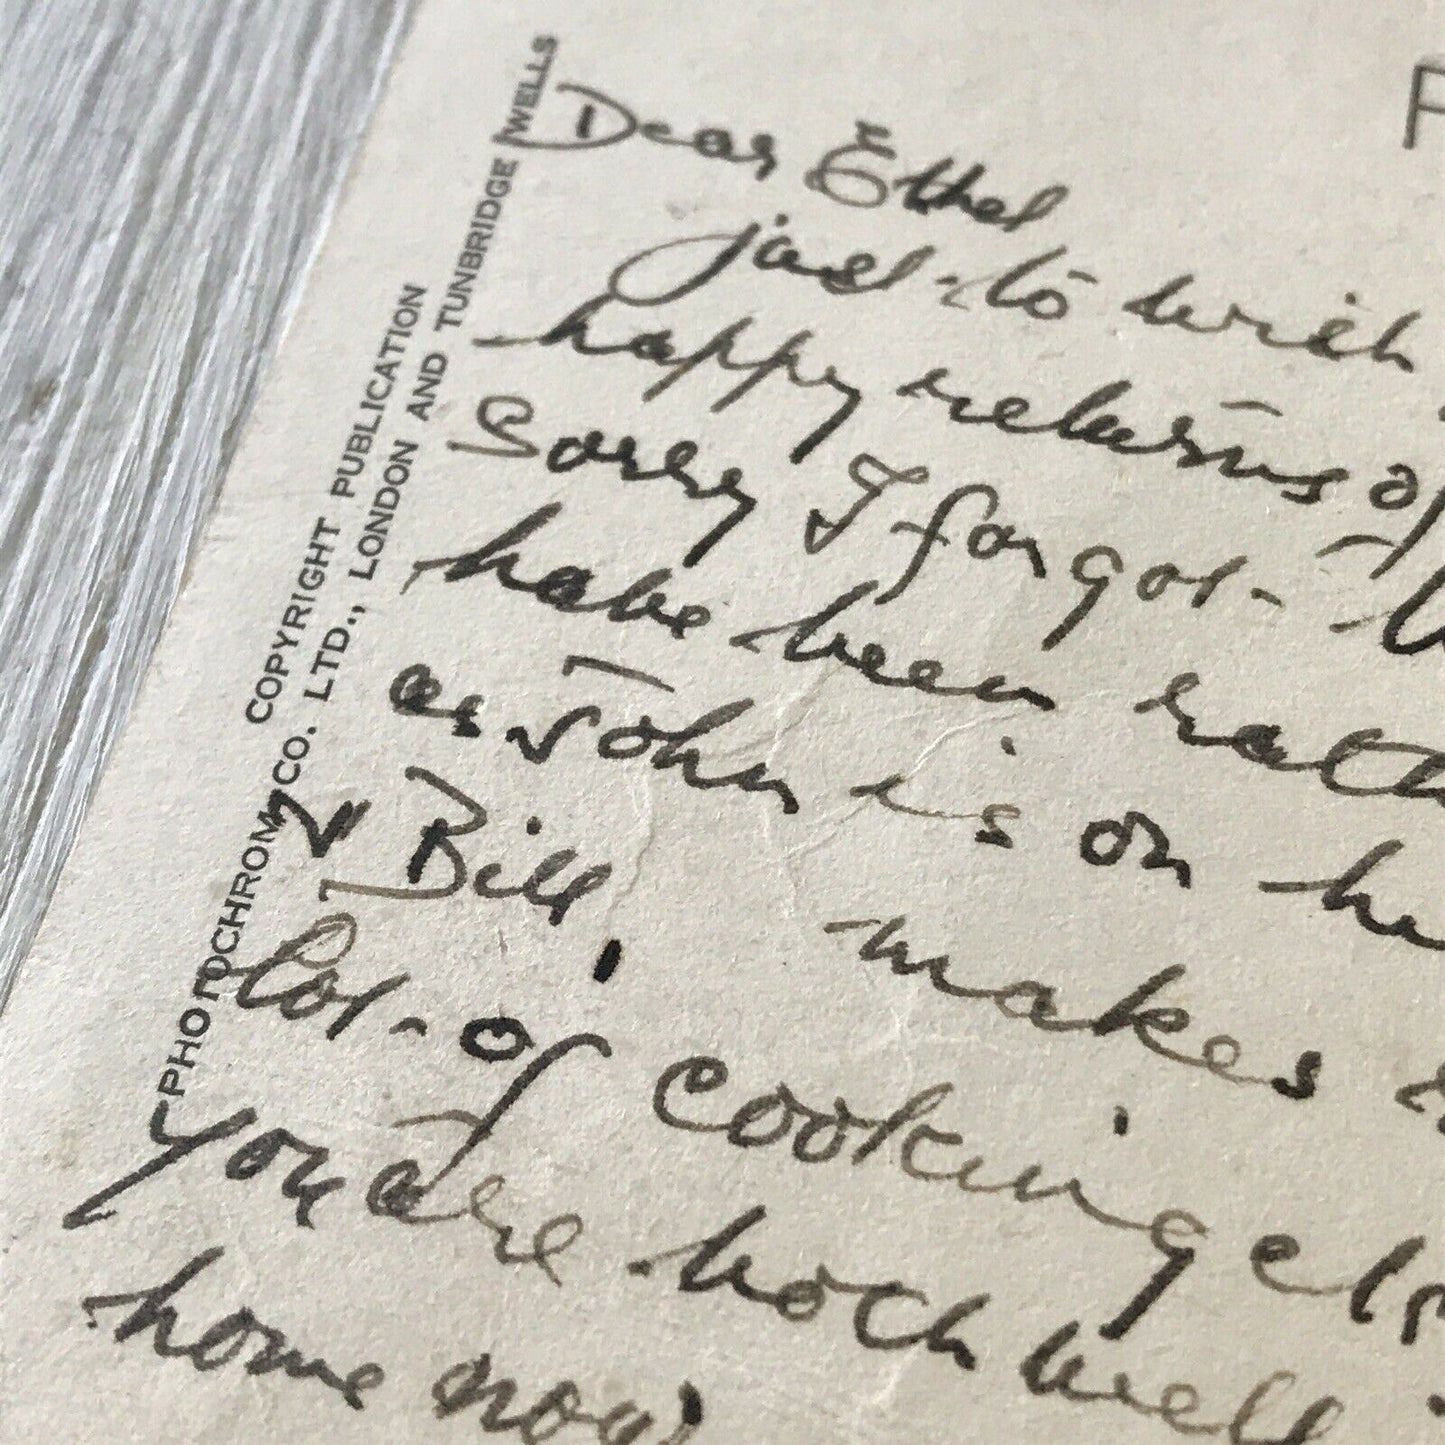 COPYRIGHT PUBLICATION
PHOTOCHROM CO. LTD., LONDON AND TUNBRIDGE WELLS
Dear Ethel
just to wish
happy returns of
Sorry I forgot
have been
as John is on
& Bill, makes
lot of cooking etc
you are both well
home now